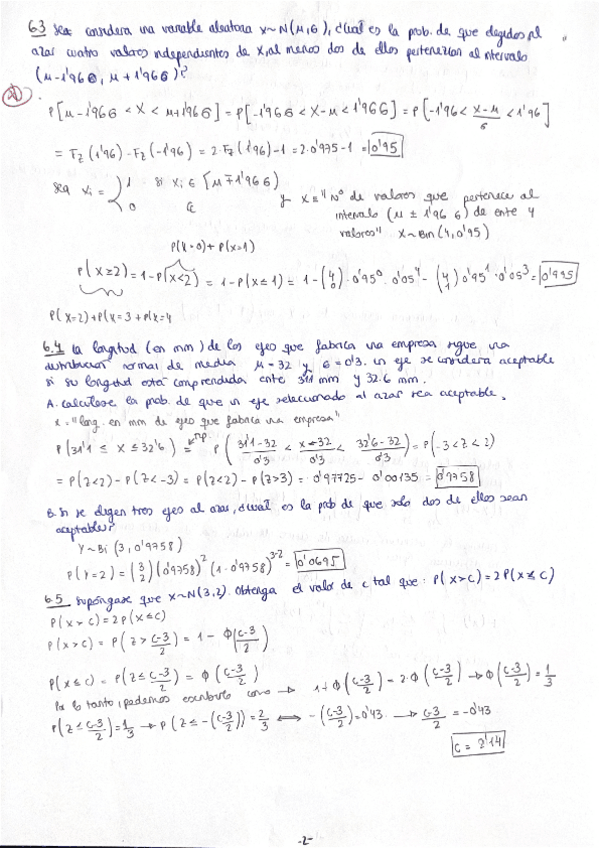 6.3 Sea considera una variable aleatoria x~N(μ,σ), ¿cuál es la prob. de que elegidos al
azar cuatro valores independientes de X, al menos dos de ellos pertenezcan al intervalo
(μ-1'96σ, μ+1'96σ)?
P[μ-1'96σ < X < μ+1'96σ] = P[-1'96σ < X-μ < 1'96σ] = P[-1'96 < (X-μ)/σ < 1'96]
= Fz(1'96) - Fz(-1'96) = 2·Fz(1'96)-1 = 2·0'975-1 = 0'95
Sea Xi = { 1 si xi ∈ [μ∓1'96σ)
0
y X = "Nº de valores que pertenece al
intervalo (μ ± 1'96 σ) de ente 4
valores" X~Bin(4,0'95)
P(X=0)+P(X=1)
P(X≥2) = 1-P(X<2) = 1-P(X≤1) = 1-(4 0)·0'95⁰·0'05⁴-(4 1)0'95¹·0'05³ = 0'995
P(X=2)+P(X=3+P(X=4
6.4 La longitud (en mm) de los ejes que fabrica una empresa sigue una
distribución normal de media μ=32 y σ=0'3. Un eje se considera aceptable
si su longitud está comprendida ente 31'1 mm y 32.6 mm.
A. Calcúlese la prob. de que un eje seleccionado al azar sea aceptable.
X = "long. en mm de ejes que fabrica una empresa"
P(31'1 ≤ X ≤ 32'6) = P((31'1-32)/0'3 < (X-32)/0'3 < (32'6-32)/0'3) = P(-3<Z<2)
= P(Z<2) - P(Z<-3) = P(Z<2) - P(Z>3) = 0'97725 - 0'00135 = 0'9758
B. Si se eligen tres ejes al azar, ¿cuál es la prob de que solo dos de ellos sean
aceptables?
Y~Bi(3, 0'9758)
P(Y=2) = (3 2)(0'9758)²(1-0'9758)³⁻² = 0'0695
6.5 Supóngase que X~N(3,2). Obtenga el valor de c tal que: P(X>c)=2P(X≤c)
P(X>c) = 2P(X≤c)
P(X>c) = P(Z > (c-3)/2) = 1 - Φ((c-3)/2)
P(X≤c) = P(Z ≤ (c-3)/2) = Φ((c-3)/2)
Por lo tanto, podemos escribirlo como → 1+Φ((c-3)/2) = 2·Φ((c-3)/2) → Φ((c-3)/2) = 1/3
P(Z ≤ (c-3)/2) = 1/3 → P(Z ≤ -((c-3)/2)) = 2/3 ⟺ -((c-3)/2) = 0'43 → (c-3)/2 = -0'43
c = 2'14
-2-